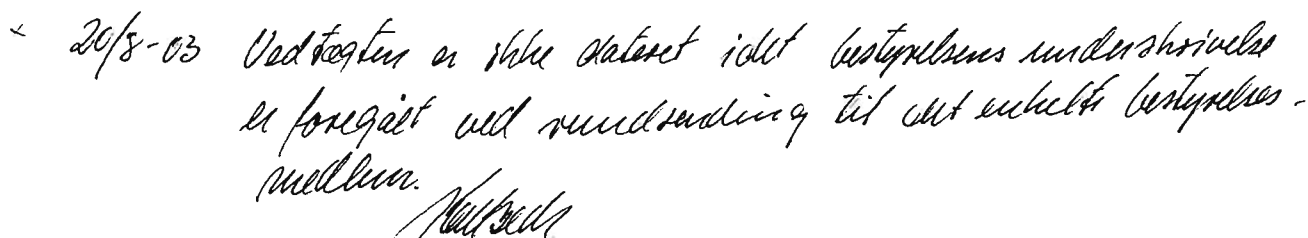 x 20/8-03 Vedtægten er ikke dateret idet bestyrelsens underskrivelse
er foregået ved rundsending til det enkelte bestyrelses-
medlem.